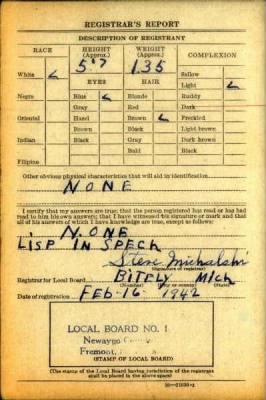 REGISTRAR'S REPORT
DESCRIPTION OF REGISTRANT
RACE HEIGHT (Approx.) WEIGHT (Approx.) COMPLEXION
5'7 135 Sallow
White ✓ EYES HAIR Light ✓
Negro Blue ✓ Blonde Ruddy
Gray Red Dark
Oriental Hazel Brown ✓ Freckled
Brown Black Light brown
Indian Black Gray Dark brown
Bald Black
Filipino
Other obvious physical characteristics that will aid in identification
NONE
I certify that my answers are true; that the person registered has read or has had
read to him his own answers; that I have witnessed his signature or mark and that
all of his answers of which I have knowledge are true, except as follows:
NONE
LISP IN SPECH
Steve Michalski
(Signature of registrar)
Registrar for Local Board BITELY MICH
(Number) (City or county) (State)
Date of registration FEB-16-1942
LOCAL BOARD NO. 1
Newaygo
Fremont,
(STAMP OF LOCAL BOARD)
(The stamp of the Local Board having jurisdiction of the registrant
shall be placed in the above space)